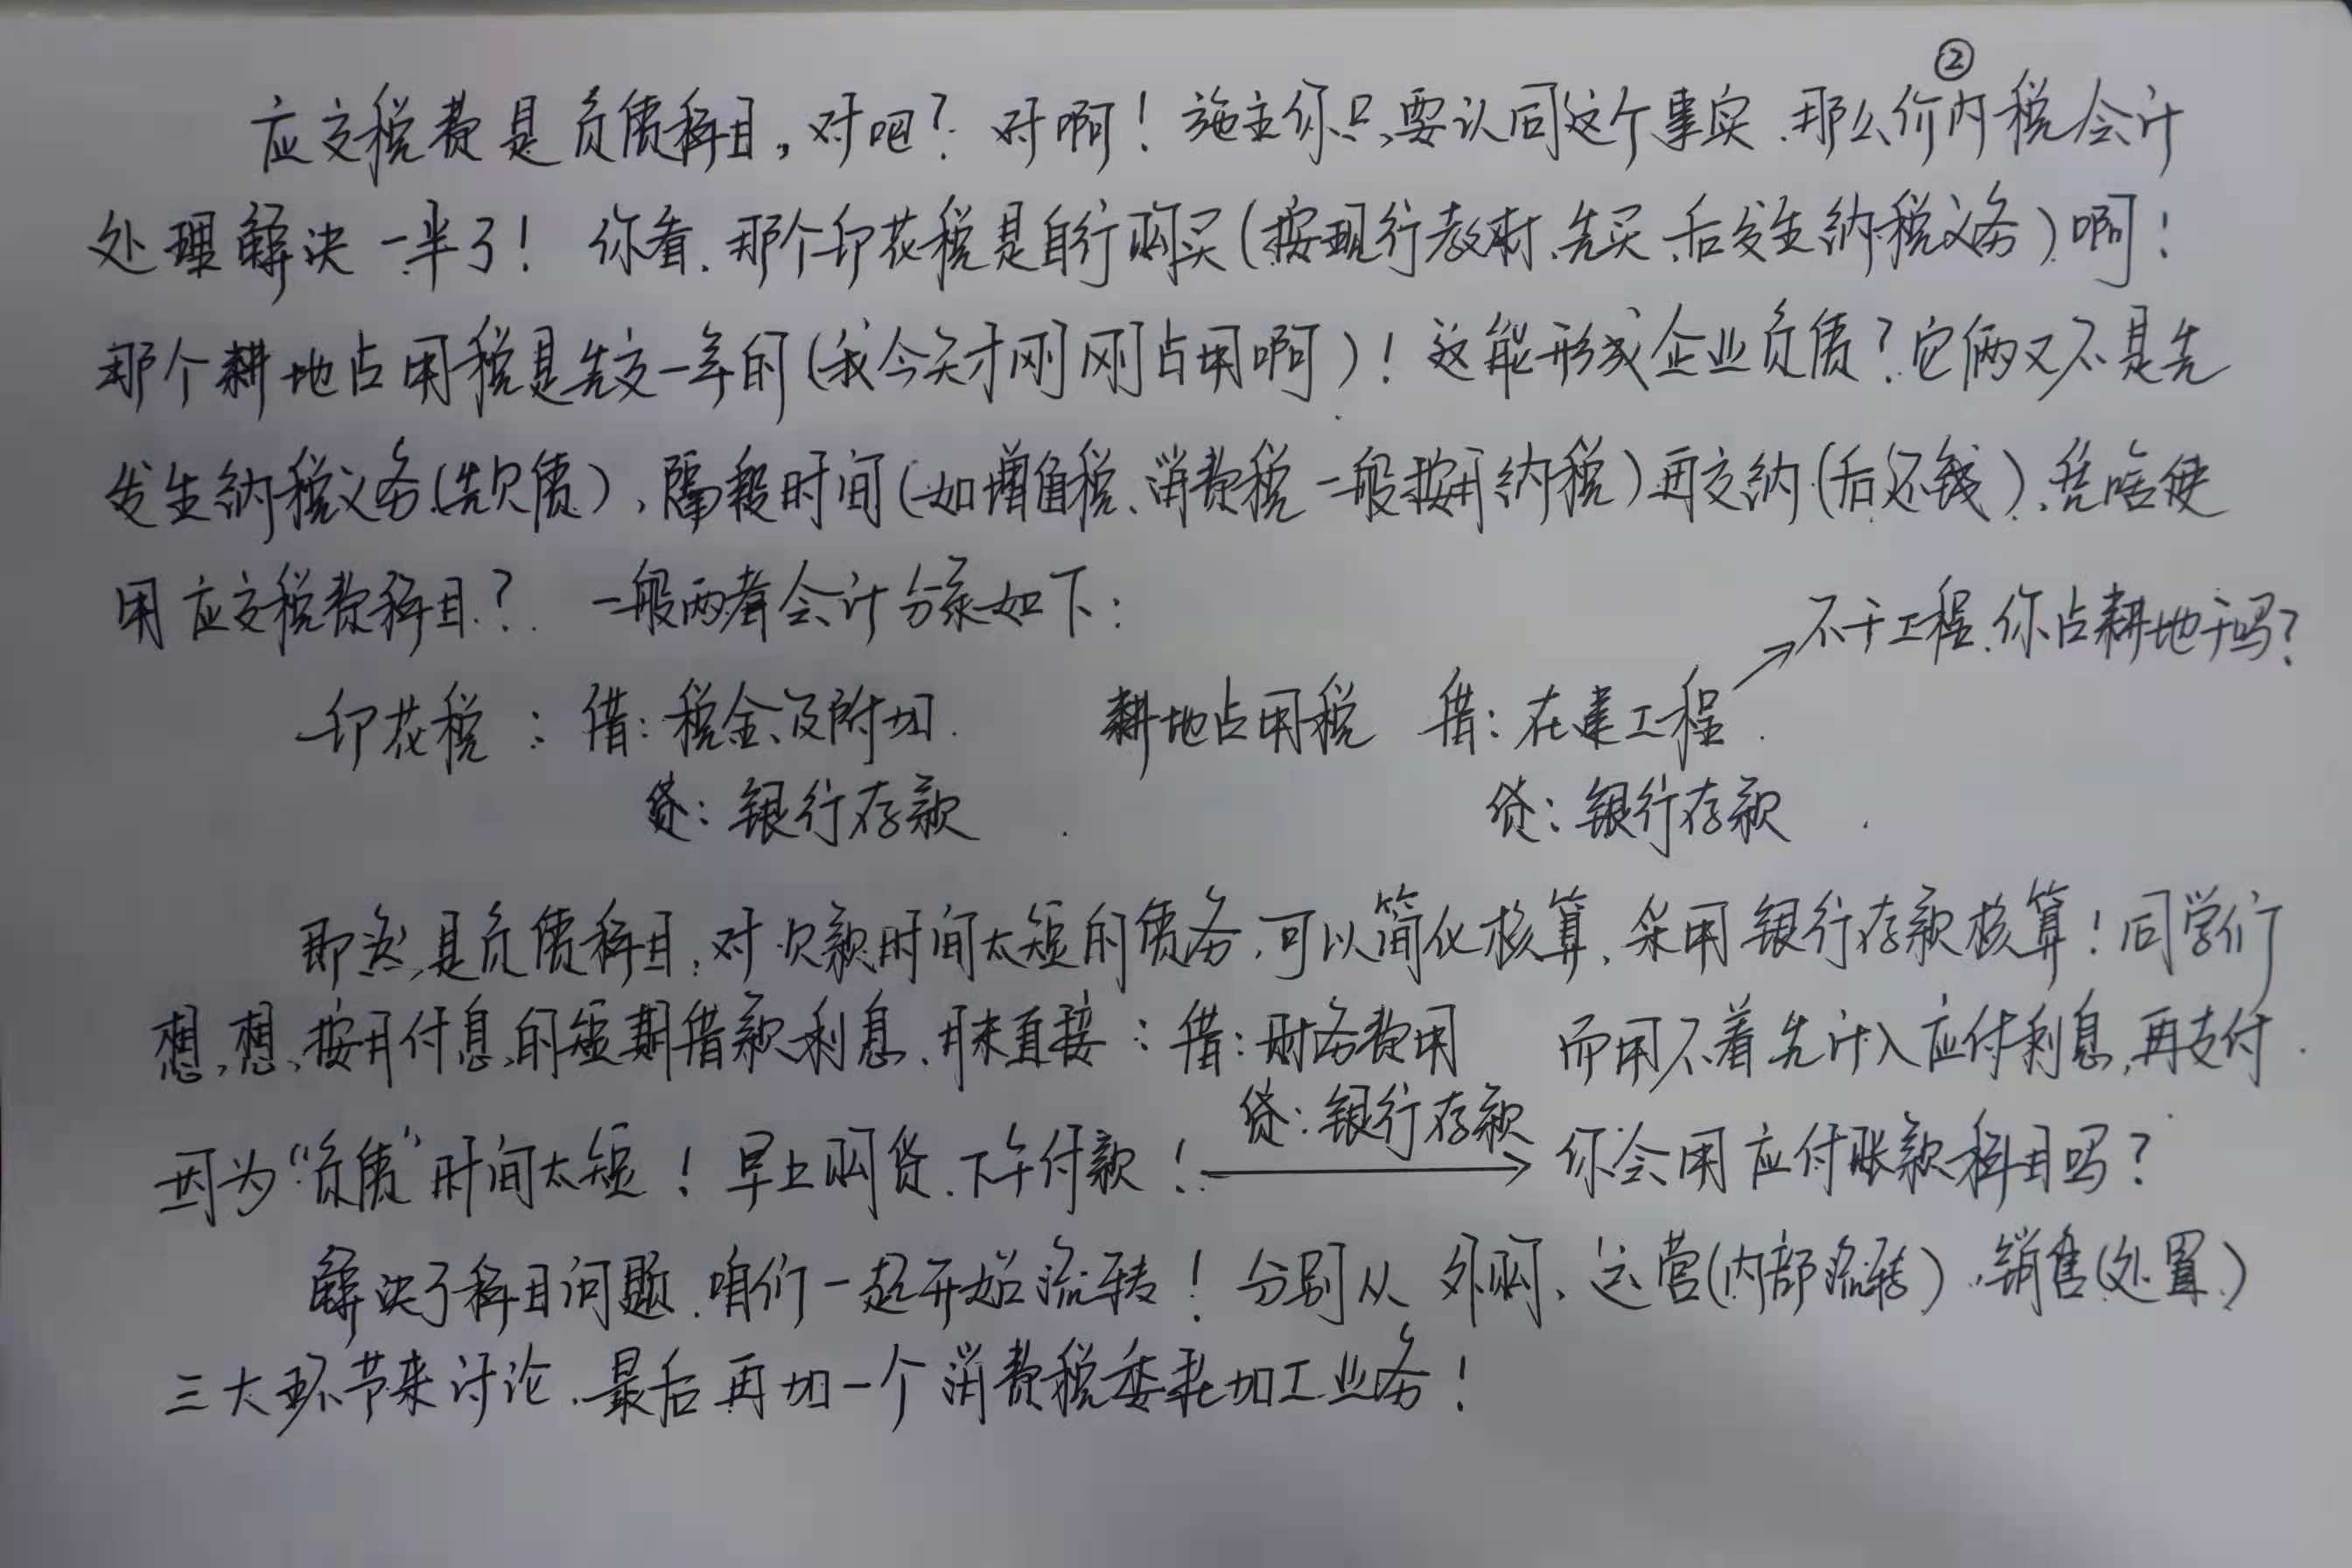 ②
应交税费是负债科目，对吧？对啊！施主你只要认同这个事实、那么价内税会计
处理解决一半了！你看、那个印花税是自行购买(按现行教材、先买、后发生纳税义务)啊！
那个耕地占用税是先交一年的(我今天才刚刚占用啊)！这能形成企业负债？它俩又不是先
发生纳税义务(先欠债)、隔段时间(如增值税、消费税一般按月纳税)再交纳(后还钱)、凭啥使
用应交税费科目？一般两者会计分录如下：
不干工程、你占耕地干吗？
印花税：借：税金及附加 耕地占用税 借：在建工程
贷：银行存款 贷：银行存款
即然是负债科目，对欠款时间太短的债务、可以简化核算、采用银行存款核算！同学们
想想、按月付息的短期借款利息、月末直接：借：财务费用 而用不着先计入应付利息、再支付.
贷：银行存款
因为“负债”时间太短！早上购货、下午付款！→你会用应付账款科目吗？
解决了科目问题、咱们一起开始流转！分别从外购、运营(内部流转)、销售(处置)
三大环节来讨论、最后再加一个消费税委托加工业务！